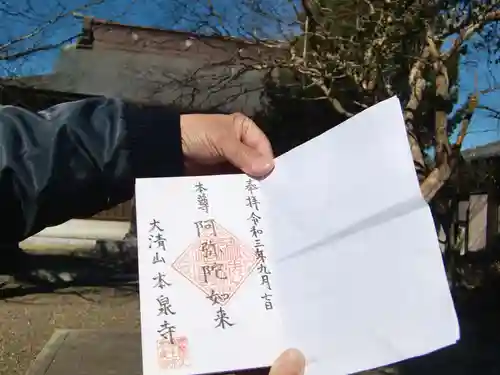 奉拝 令和三年九月吉日
本尊 阿弥陀如来
大清山 本泉寺